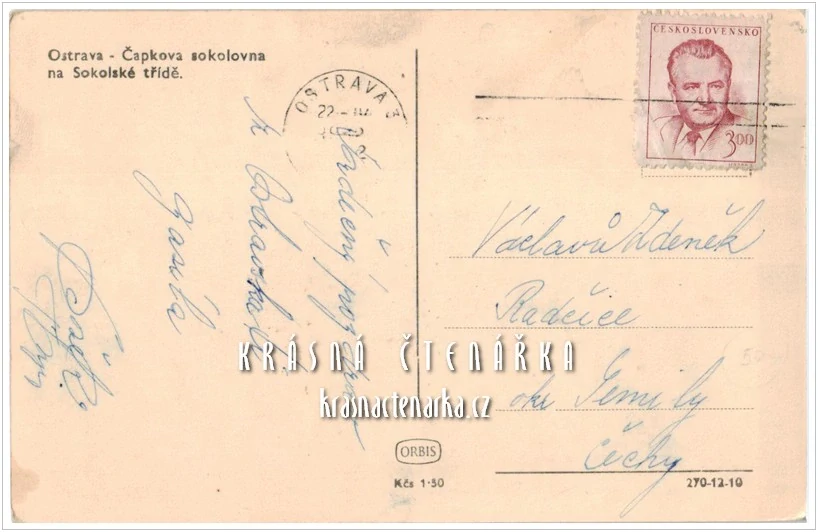 Ostrava - Čapkova sokolovna
na Sokolské třídě.
OSTRAVA 3
22 - IV
ČESKOSLOVENSKO
3.00
Srdečný pozdrav
z Ostravska
zasílá
Václavů Zdeněk
Radčice
okr Semily
Čechy
KRÁSNÁ ČTENÁŘKA
krasnactenarka.cz
ORBIS
Kčs 1·30
270-12-10